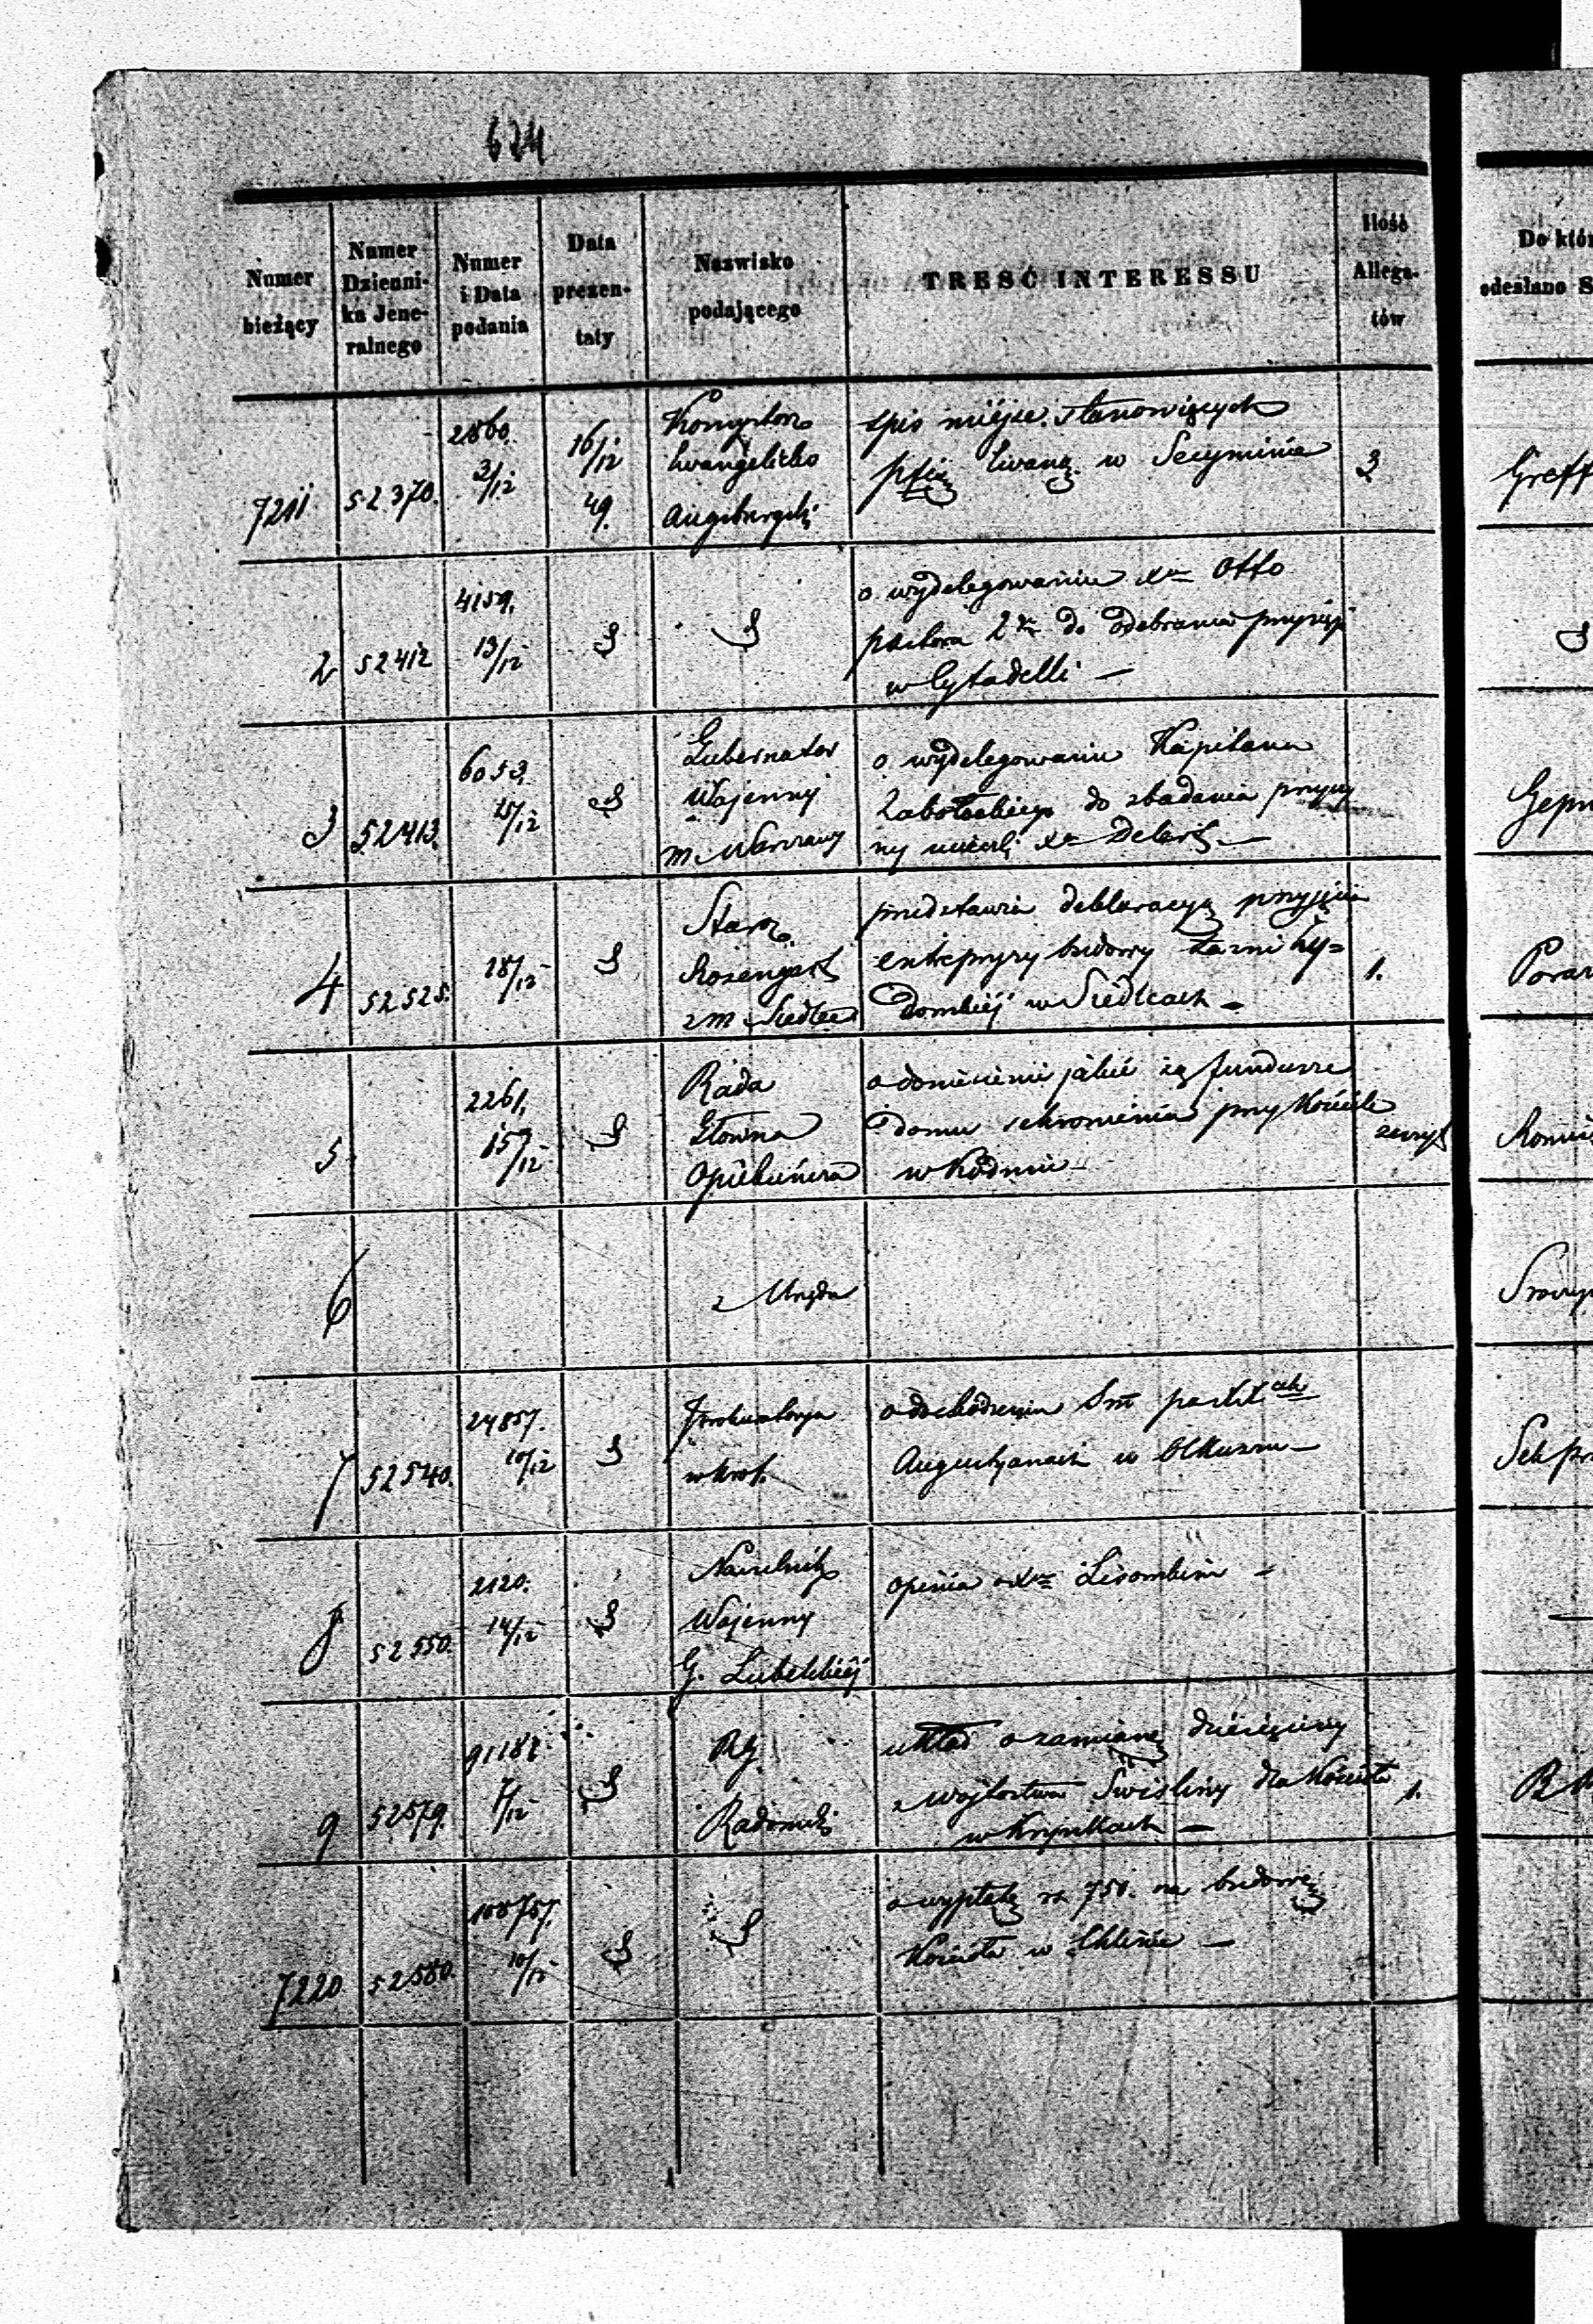 624
Numer bieżący
Numer Dzienni- ka Jene- ralnego
Numer i Data podania
Data prezen- taty
Nazwisko podającego
TRESĆ INTERESSU
Ilość Allega- tów
Do któr
odesłano S
7211 52370. 2860. 3/12 16/12 49.
Konsystorz
Ewangelicko
Augsburgski
spis miejsc stanowiących
w Secyminie
3
Greff
2 52412 4159. 13/12
o wydelegowanie Xa Otto
pastora 2go do odebrania przysięgi
w Cytadelli —
3 52413. 6053. 15/12
Gubernator
Wojenny
m. Warszawy
o wydelegowaniu Kapitana
Zabołockiego do zbadania przyczy
ny
4 52525. 18/12
Starz.
Rosengart
z m Siedlec
przedstawia deklaracyą przyjęcia
entrepryzy budowy łazni ży=
dowskiéj w Siedlcach —
1.
5 2261. 15/12
Rada
Główna
Opiekuńcza
o doniesienie jakie są fundusze
domu schronienia przy Kościele
w Kodniu —
6
z Urzędu
7 52540. 24857. 10/12
Prokuratorya
w Król.
o dochodzeniu Sm
Augustyanach w Olkuszu —
8 52550. 2120. 14/12
Naczelnik
Wojenny
G. Lubelskiéj
opinia o Xdzu —
9 52579. 91182. 7/12
RG.
Radomski
układ o zamianę dziesięciny
z Wójtostwa Swisliny dla Kościoła
w Krynkach —
1.
7220 52580. 10/12
o wypłatę rs 750. na budowę
Kościoła w Chlinie —